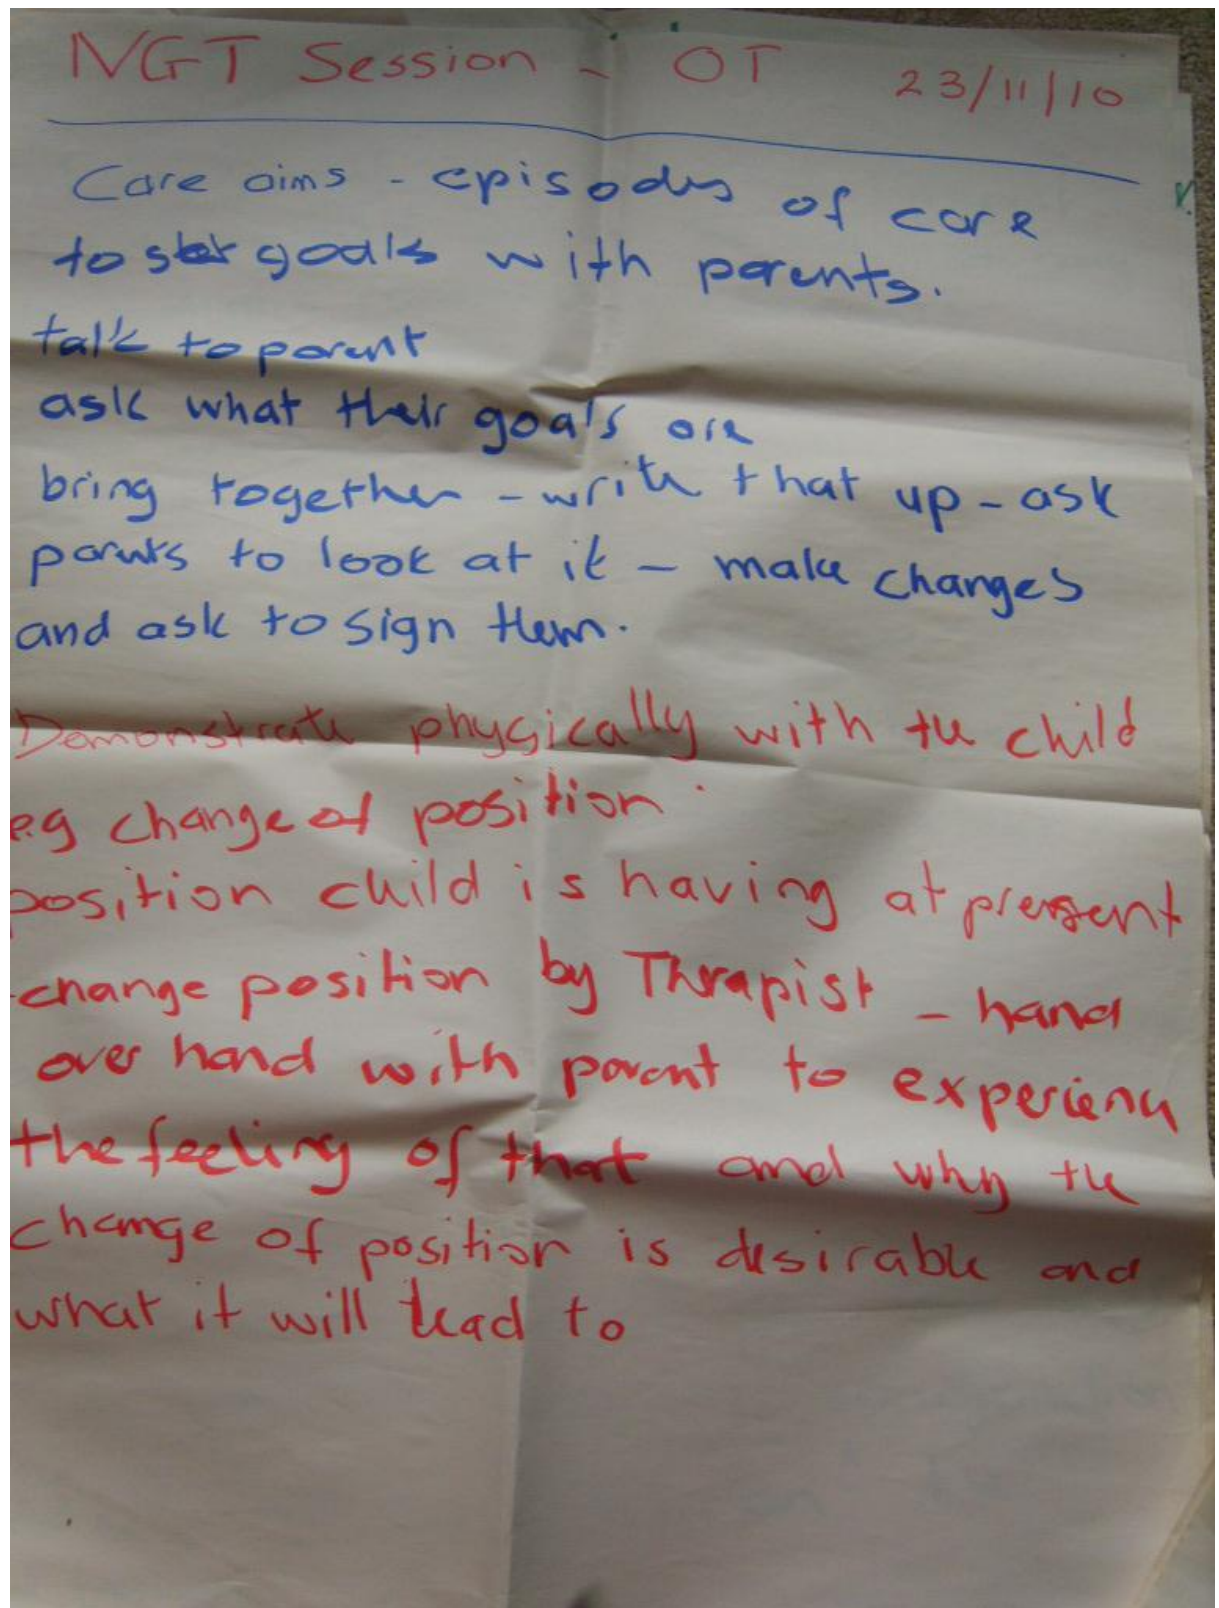 NGT Session - OT 23/11/10
Care aims - episodes of care
to set goals with parents.
talk to parent
ask what their goals are
bring together - write that up - ask
parents to look at it - make changes
and ask to sign them.
Demonstrate physically with the child
e.g change of position
position child is having at present
change position by Thrapist - hand
over hand with parent to experience
the feeling of that and why the
change of position is desirable and
what it will lead to